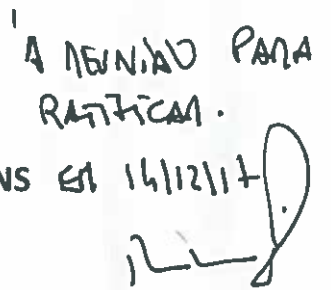 À REUNIÃO PARA
RATIFICAR.
EM 14/12/17